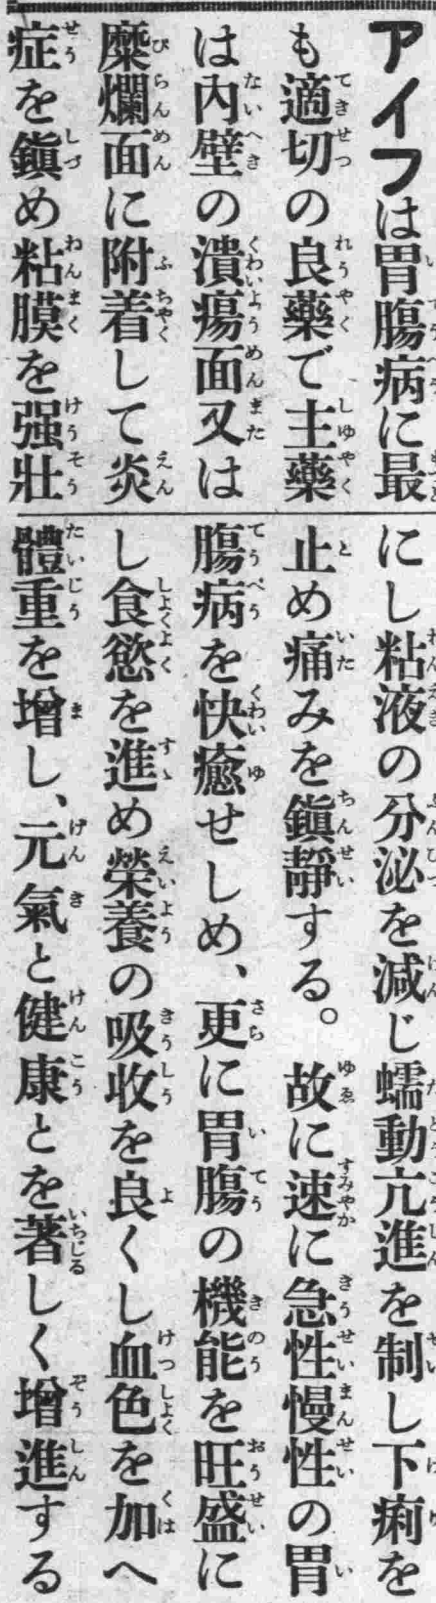 アイフは胃腸病に最
も適切の良藥で主藥
は內壁の潰瘍面又は
糜爛面に附着して炎
症を鎭め粘膜を强壯
にし粘液の分泌を減じ蠕動亢進を制し下痢を
止め痛みを鎭靜する。故に速に急性慢性の胃
腸病を快癒せしめ、更に胃腸の機能を旺盛に
し食慾を進め榮養の吸收を良くし血色を加へ
體重を增し、元氣と健康とを著しく增進する